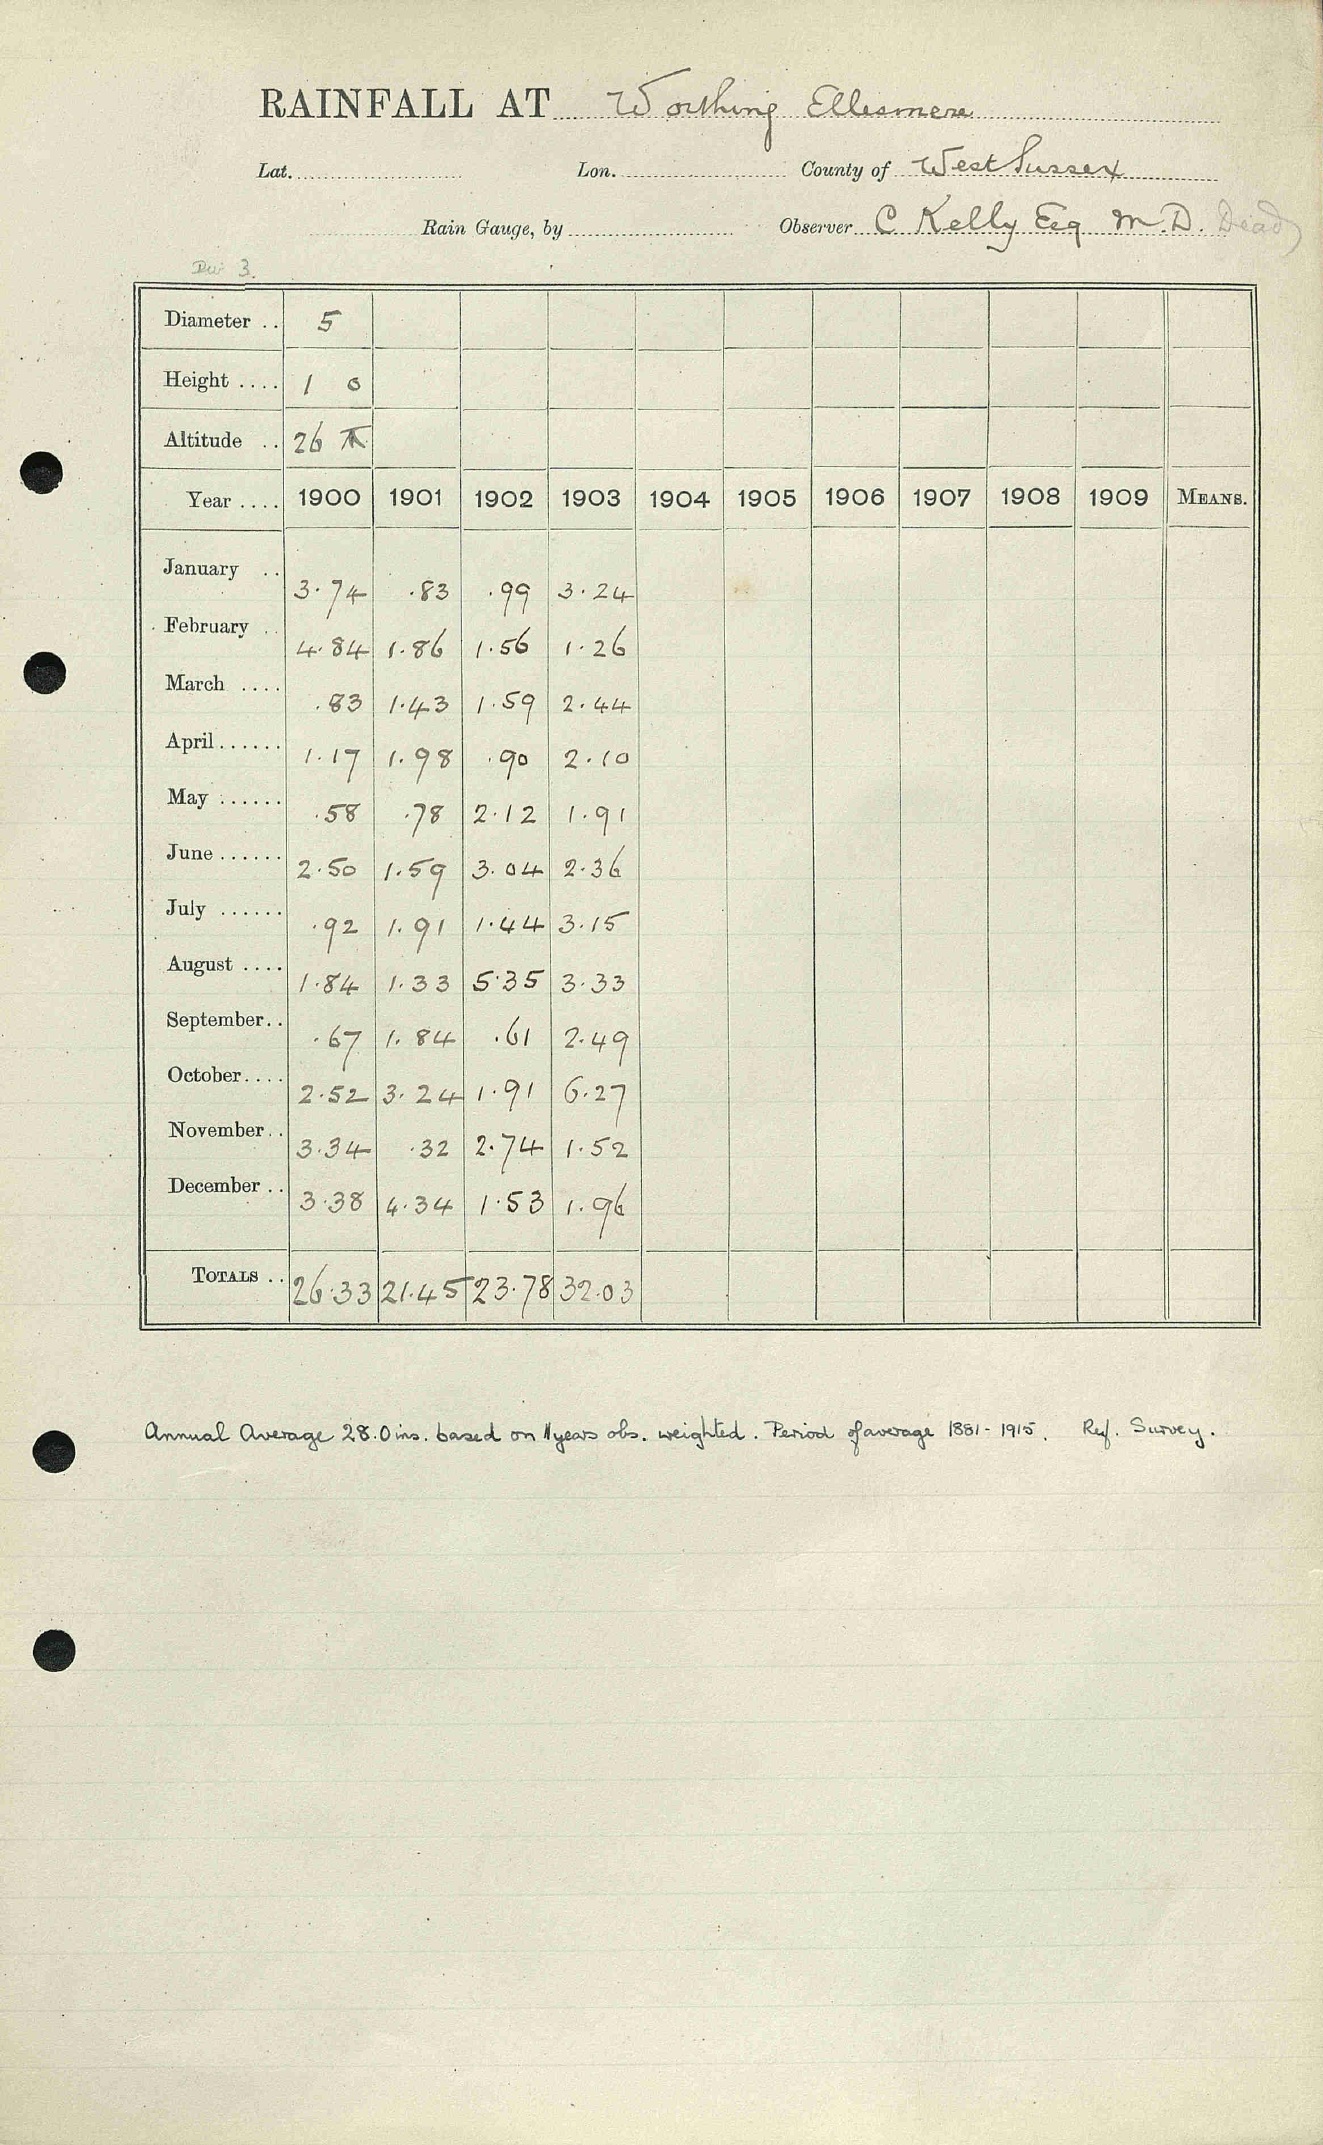 RAINFALL AT Worthing Ellesmere
Lat. Lon. County of West Sussex
Rain Gauge, by Observer C Kelly Esq M.D. Dead
Div 3.
Diameter .. 5
Height .... 1 0
Altitude .. 26
Year .... 1900 1901 1902 1903 1904 1905 1906 1907 1908 1909 MEANS.
January .. 3.74 .83 .99 3.24
February .. 4.84 1.86 1.56 1.26
March .... .83 1.43 1.59 2.44
April ...... 1.17 1.98 .90 2.10
May ...... .58 .78 2.12 1.91
June ...... 2.50 1.59 3.04 2.36
July ...... .92 1.91 1.44 3.15
August .... 1.84 1.33 5.35 3.33
September .. .67 1.84 .61 2.49
October .... 2.52 3.24 1.91 6.27
November .. 3.34 .32 2.74 1.52
December .. 3.38 4.34 1.53 1.96
TOTALS .. 26.33 21.45 23.78 32.03
Annual Average 28.0 ins. based on 11 years obs. weighted. Period of average 1881-1915. Ref. Survey.